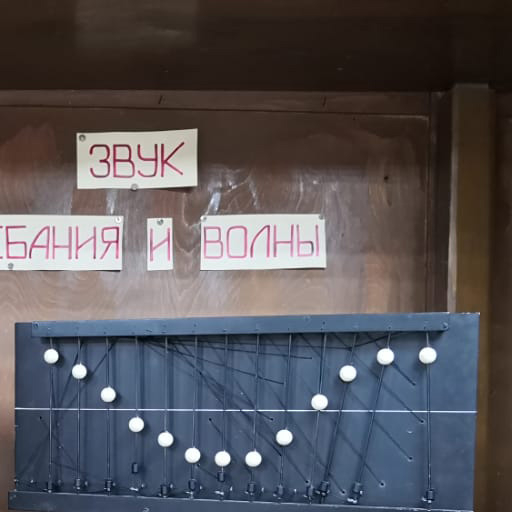 ЗВУК
ЕБАНИЯ И ВОЛНЫ